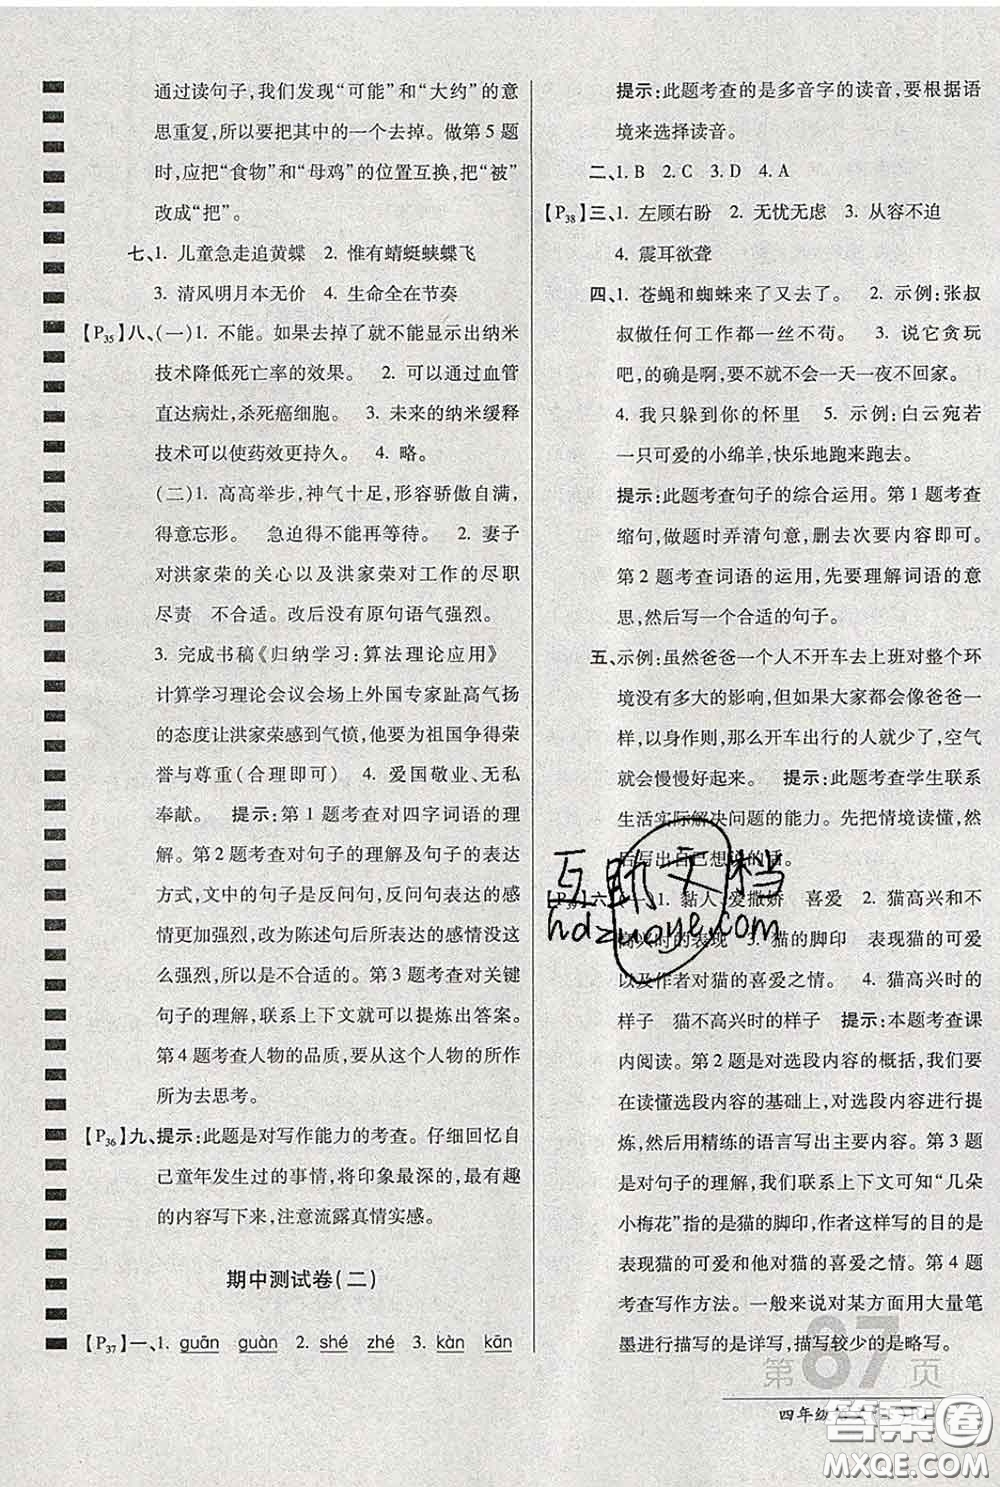 通过读句子,我们发现“可能”和“大约”的意
思重复,所以要把其中的一个去掉。做第 5 题
时,应把“食物”和“母鸡”的位置互换,把“被”
改成“把”。
七、1. 儿童急走追黄蝶 2. 惟有蜻蜓蛱蝶飞
3. 清风明月本无价 4. 生命全在节奏
【P35】八、(一)1. 不能。如果去掉了就不能显示出纳米
技术降低死亡率的效果。 2. 可以通过血管
直达病灶,杀死癌细胞。 3. 未来的纳米缓释
技术可以使药效更持久。 4. 略。
(二)1. 高高举步,神气十足,形容骄傲自满,
得意忘形。 急迫得不能再等待。 2. 妻子
对洪家荣的关心以及洪家荣对工作的尽职
尽责 不合适。改后没有原句语气强烈。
3. 完成书稿《归纳学习:算法理论应用》
计算学习理论会议会场上外国专家趾高气扬
的态度让洪家荣感到气愤,他要为祖国争得荣
誉与尊重(合理即可) 4. 爱国敬业、无私
奉献。 提示:第 1 题考查对四字词语的理
解。第 2 题考查对句子的理解及句子的表达
方式,文中的句子是反问句,反问句表达的感
情更加强烈,改为陈述句后所表达的感情没这
么强烈,所以是不合适的。第 3 题考查对关键
句子的理解,联系上下文就可以提炼出答案。
第 4 题考查人物的品质,要从这个人物的所作
所为去思考。
【P36】九、提示:此题是对写作能力的考查。仔细回忆自
己童年发生过的事情,将印象最深的、最有趣
的内容写下来,注意流露真情实感。
期中测试卷(二)
【P37】一、1. guān guàn 2. shé zhé 3. kàn kān
提示:此题考查的是多音字的读音,要根据语
境来选择读音。
二、1. B 2. C 3. D 4. A
【P38】三、1. 左顾右盼 2. 无忧无虑 3. 从容不迫
4. 震耳欲聋
四、1. 苍蝇和蜘蛛来了又去了。 2. 示例:张叔
叔做任何工作都一丝不苟。 3. 说它贪玩
吧,的确是啊,要不怎么会一天一夜不回家。
4. 我只躲到你的怀里 5. 示例:白云宛若
一只可爱的小绵羊,快乐地跑来跑去。
提示:此题考查句子的综合运用。第 1 题考查
缩句,做题时弄清句意,删去次要内容即可。
第 2 题考查词语的运用,先要理解词语的意
思,然后写一个合适的句子。
五、示例:虽然爸爸一个人不开车去上班对整个环
境没有多大的影响,但如果大家都会像爸爸一
样,以身作则,那么开车出行的人就少了,空气
就会慢慢好起来。 提示:此题考查学生联系
生活实际解决问题的能力。先把情境读懂,然
后写出自己想说的话。
【P39】六、一、1. 黏人 爱撒娇 喜爱 2. 猫高兴和不
高兴时的表现 3. 猫的脚印 表现猫的可爱
以及作者对猫的喜爱之情。 4. 猫高兴时的
样子 猫不高兴时的样子 提示:本题考查课
内阅读。第 2 题是对选段内容的概括,我们要
在读懂选段内容的基础上,对选段内容进行提
炼,然后用精练的语言写出主要内容。第 3 题
是对句子的理解,我们联系上下文可知“几朵
小梅花”指的是猫的脚印,作者这样写的目的是
表现猫的可爱和他对猫的喜爱之情。第 4 题
考查写作方法。一般来说对某方面用大量笔
墨进行描写的是详写,描写较少的是略写。
互助文档
hdzuoye.com
第67页
四年级
答案圈
MXQE.COM